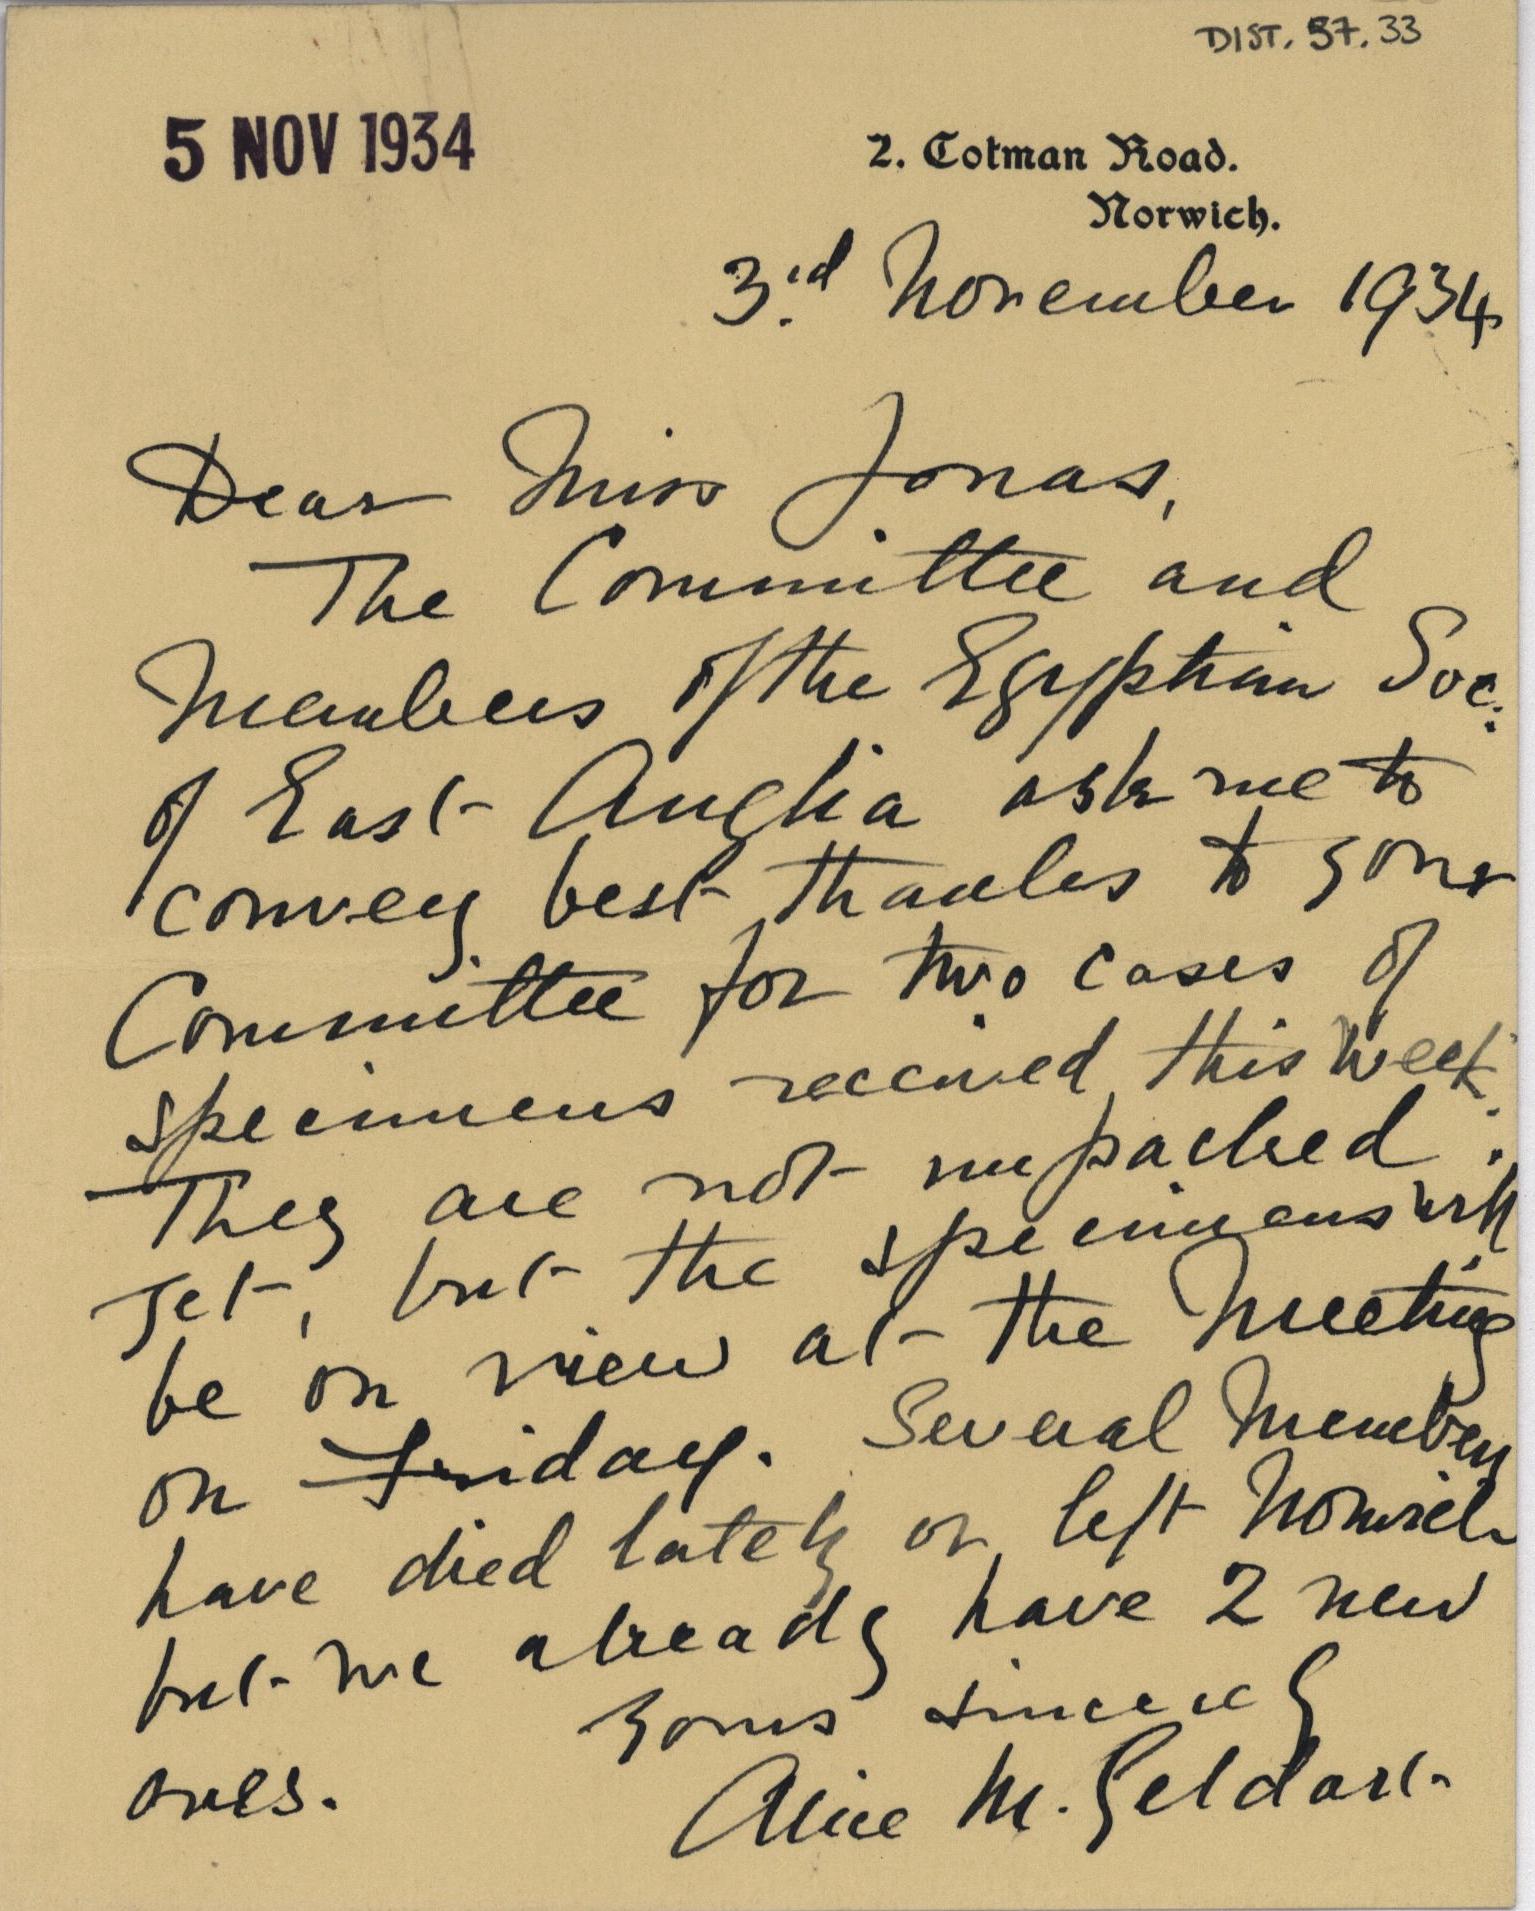 DIST. 57.33
5 NOV 1934
2. Cotman Road.
Norwich.
3rd November 1934
Dear Miss Jonas,
The Committee and
Members of the Egyptian Soc.
of East Anglia ask me to
convey best thanks to your
Committee for two cases of
specimens received this week.
They are not unpacked
yet, but the specimens will
be on view at the Meeting
on Friday. Several Members
have died lately or left Norwich
but we already have 2 new
ones.
Yours sincerely
Alice M. Geldart